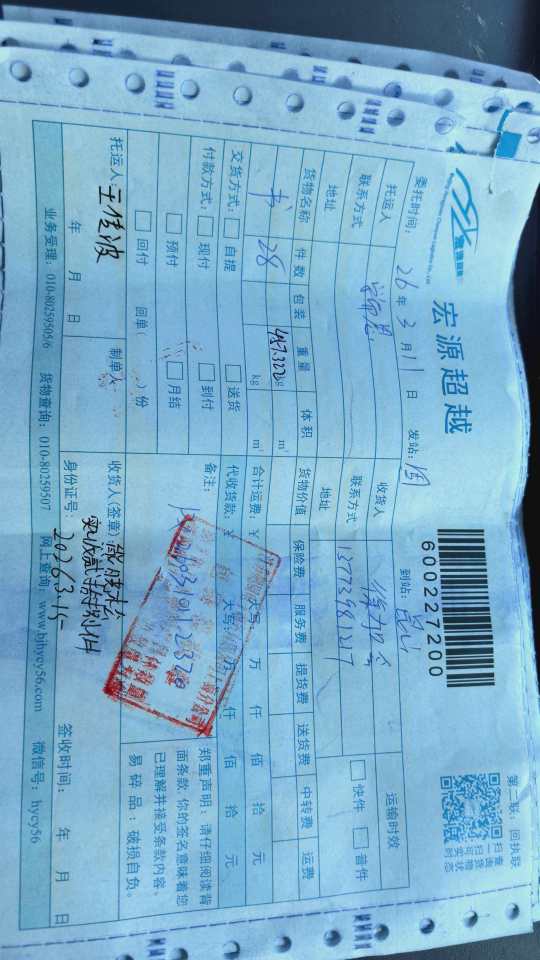 宏源超越
600227200
第二联：回执联
扫一扫
查询货物
实时状态
委托时间：26年3月11日 发站： 到站：昆山
托运人 收货人 运输时效
联系方式 联系方式 13773981217 快件 普件
地址 地址
货物名称 件数 包装 重量 体积 货物价值 保险费 服务费 提货费 送货费 中转费 运费
书 28 kg m³ m³
合计运费：￥ 大写： 万 仟 佰 拾 元
交货方式： 自提 送货 代收货款：￥ 大写： 万 仟 佰 拾 元
付款方式： 现付 到付 备注：
预付 月结
回付 回单（ ）份
郑重声明：请仔细阅读背
面条款，你的签名意味着您
已理解并接受条款内容。
易碎品：破损自负。
托运人：王佳波 制单人： 收货人(签章)
年 月 日 身份证号： 2026.3.15 签收时间： 年 月 日
业务受理：010-80259505/6 货物查询：010-80259507 网上查询：www.bjhycy56.com 微信号：hycy56